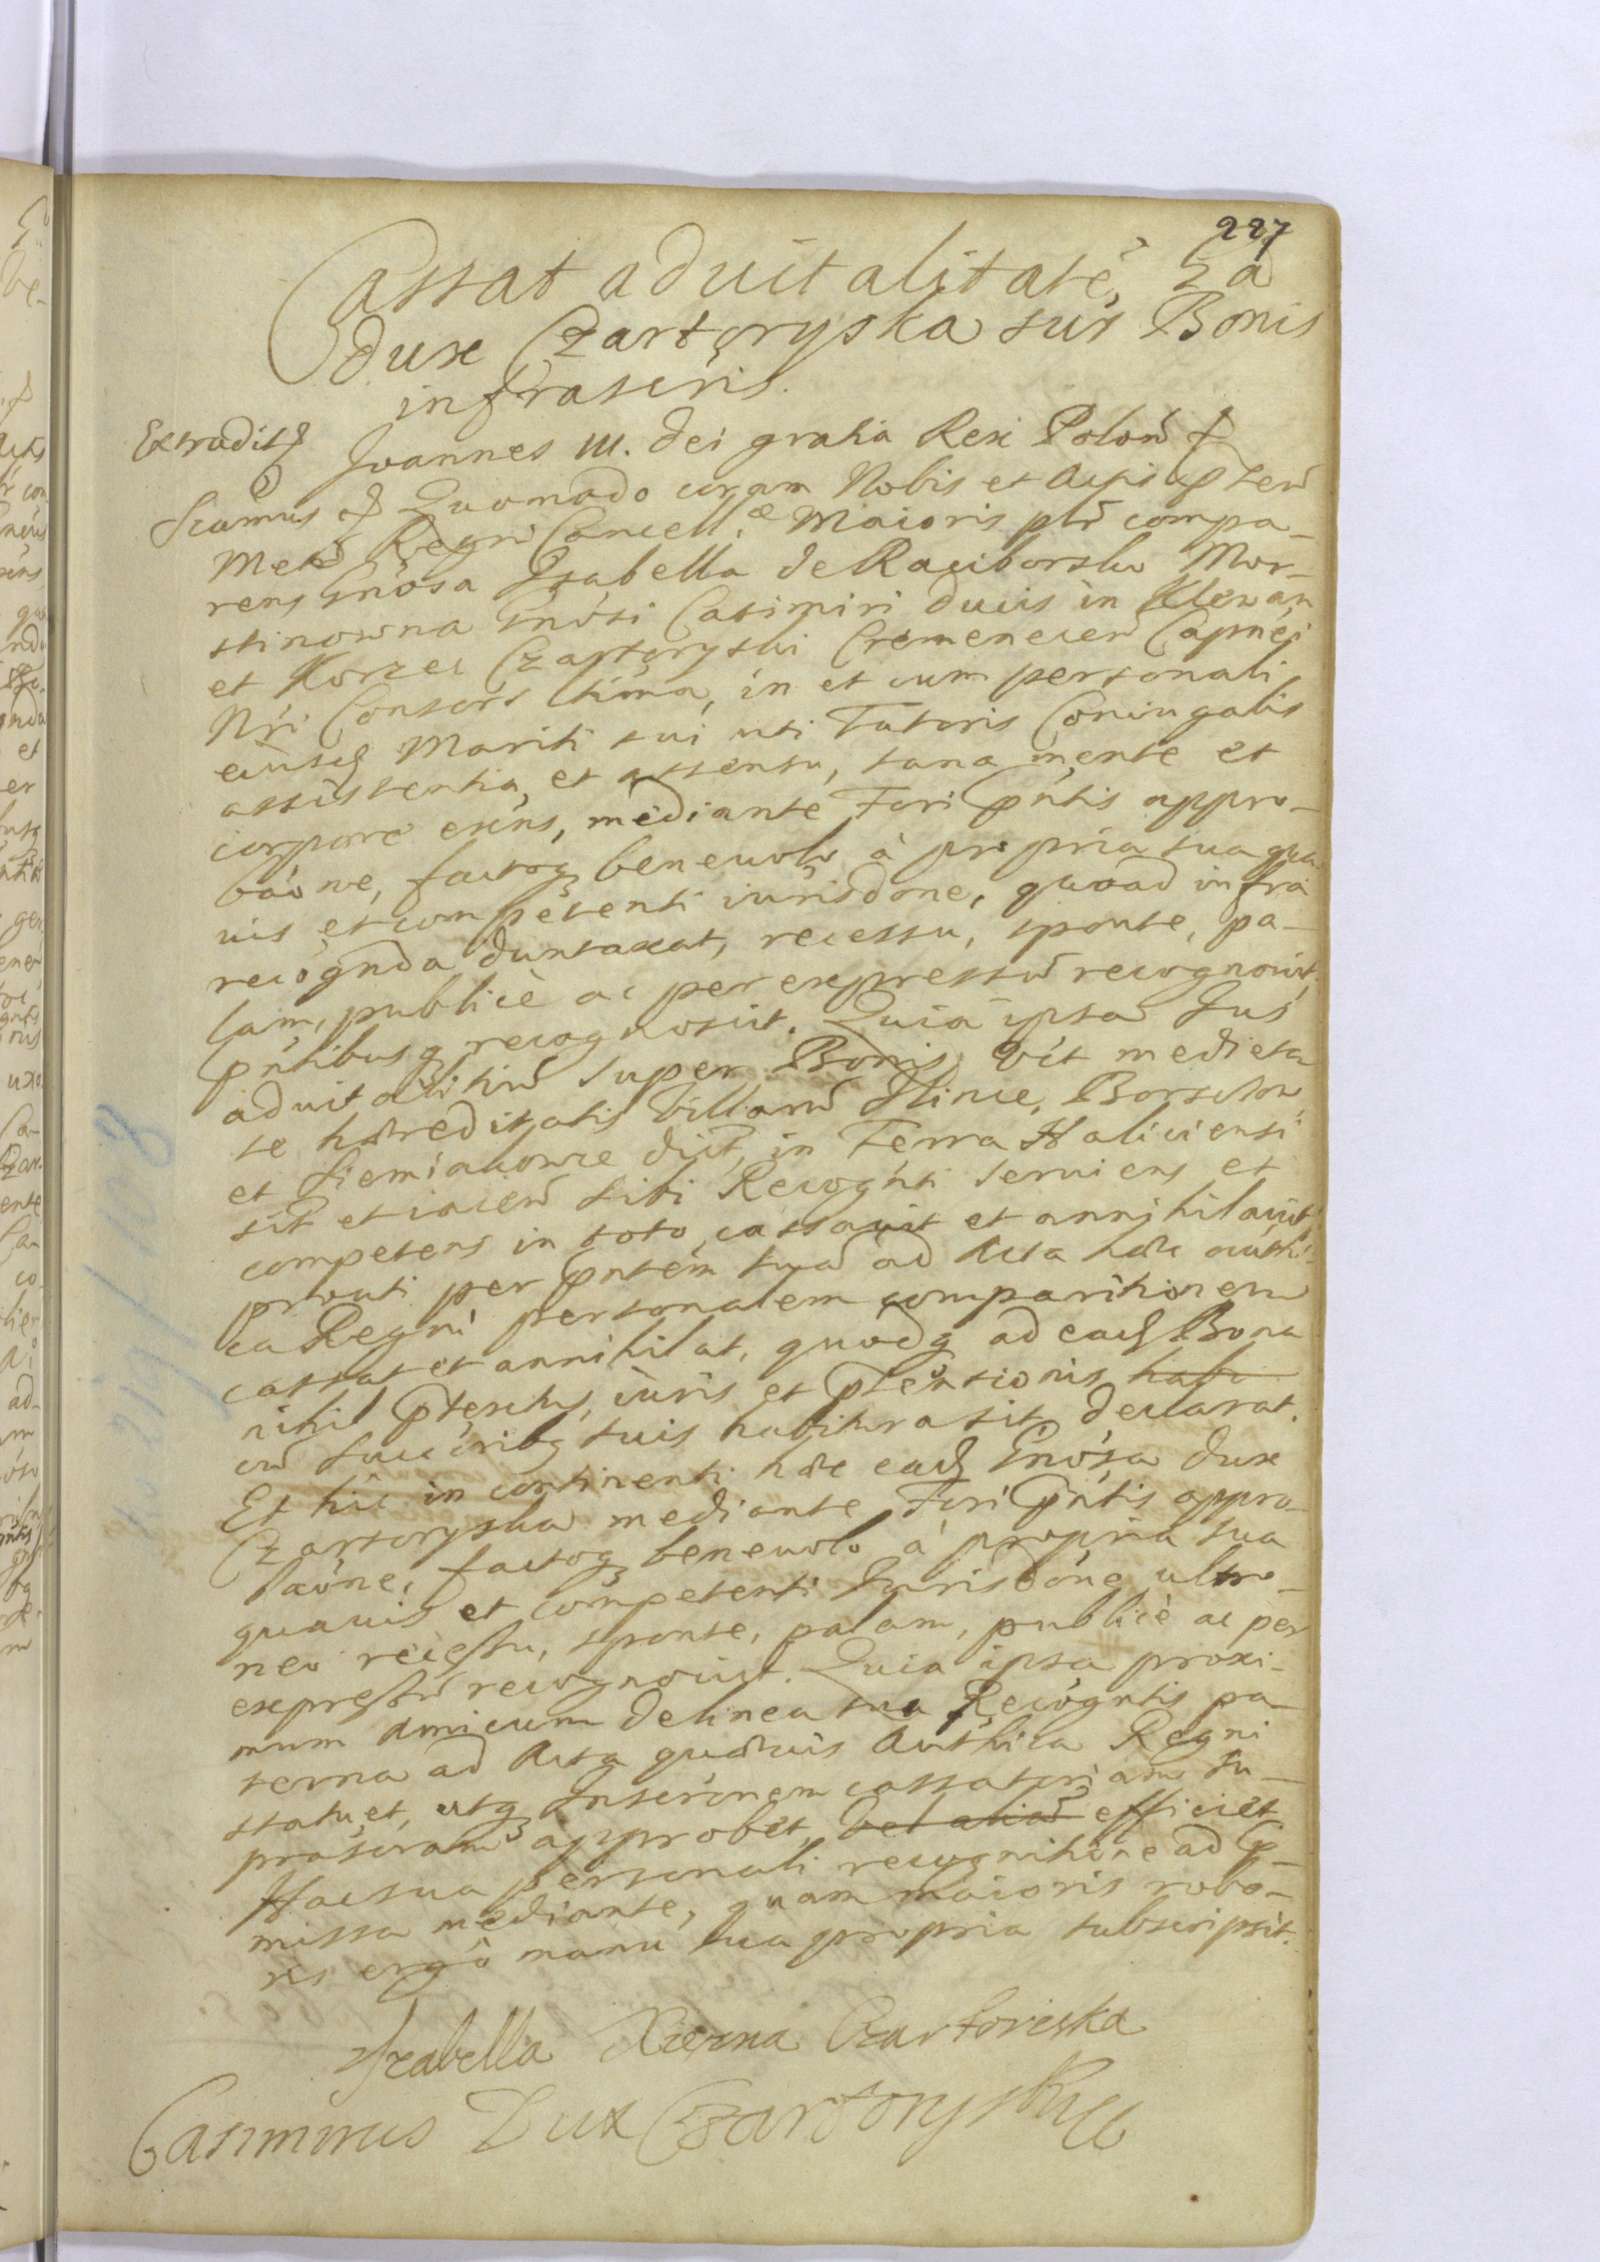 227
Cassat aduitalitatẽ, Ga
Dux Czartoryska sup Bonis
infrascris.
Extradit
Joannes III. Dei gratia Rex Polon
Scimus Quomodo coram Nobis et Actis
Regni Cancell.æ Maioris plr compa-
rens Gnósa Izabella de Raciborsko Mor-
stinowna Gnósi Casimiri Ducis in Klewan
et Korzec Czartoryski Cremenecen Capnei
Nri Consors ltima, in et cum personali
eiusd Mariti sui uti Tutoris Coniugalis
assistentia, et assensu, sana mente et
corpore exns, mediante Fori pntis appro-
baóne, factoq beneuolo à propria sua qua
uis et competenti iurisdone, quoad infra
recognda duntaxat, recessu, sponte, pa-
lam, publicè ac per expressu recognouit,
pntibusq recognoscit. Quia ipsa Jus
aduitalitiu super Bonis vct medieta
te hæreditatis Villaru Ilince, Borsch
et Siemiakowce dict, in Terra Haliciensi
sit et iacen sibi Recognti seruiens et
competens in toto cassauit et annihilauit,
prouti per pntem sua ad Acta hæc authi
ca Regni personalem comparitionem
cassat et annihilat, quodq ad ead Bona
nihil ptextus, iuris et ptensionis habi
cu succrib suis habitura sit, declarat.
Et hic in continenti hæc ead Gnósa Dux
Czartoryska mediante Fori pntis appro-
baóne, factoq beneuolo à propria sua
quauis et competenti Jurisdóne ultro-
neo recessu, sponte, palam, publicè ac per
expressu recognouit. Quia ipsa proxi-
mum Amicum de linea sua Recogntis pa-
terna ad Acta quæuis Authica Regni
statuet, utq Inscrónem cassatoriam su-
prascram approbet, vel alias efficiet
Hac sua personali recognitióne ad p-
missa mediante, quam maioris robo-
ris ergô manu sua propria subscripsit.
Izabella Xiezna Czartoreska
Casimirus Dux Czartoryski